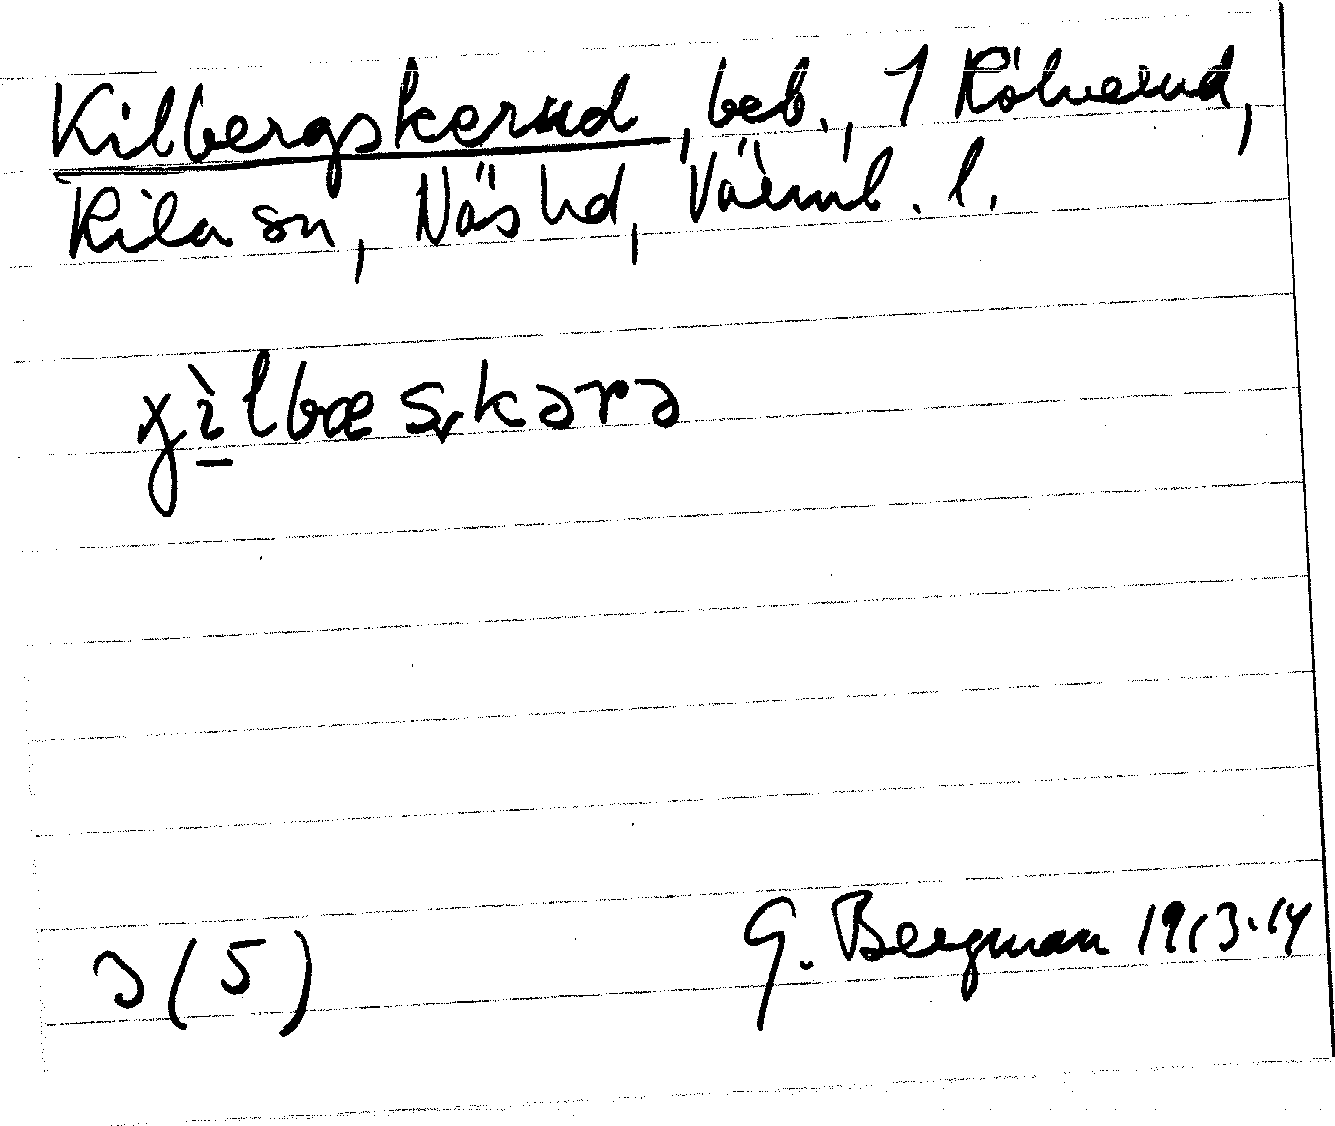 Kilbergskerud, beb., 1 Rölverud,
Kila sn, Näs hd, Värml. l.
χìlbæsƙkərə
5 (5)
G. Bergman 1913-14